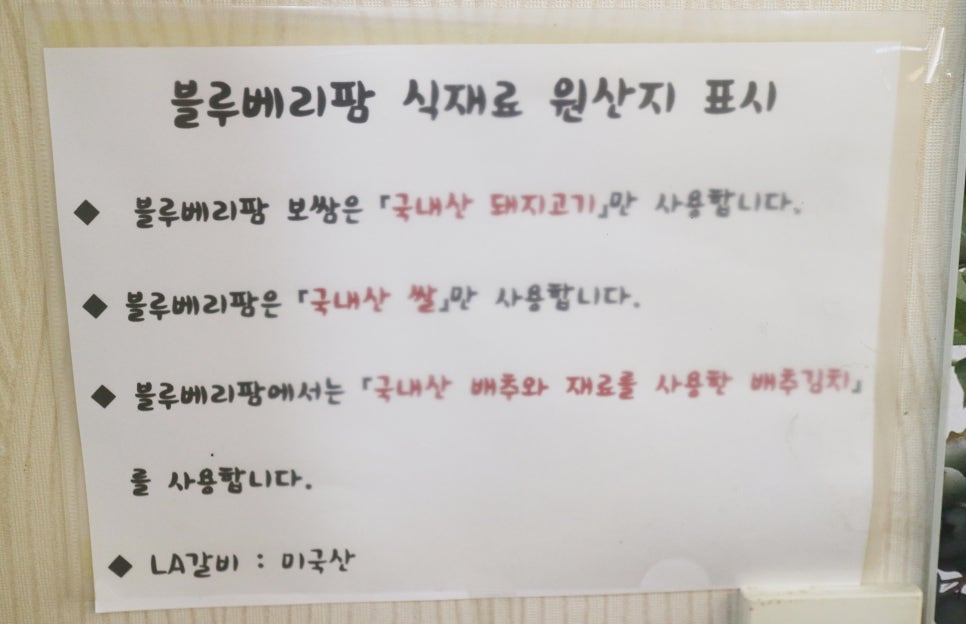 블루베리팜 식재료 원산지 표시
◆ 블루베리팜 보쌈은 「국내산 돼지고기」만 사용합니다.
◆ 블루베리팜은 「국내산 쌀」만 사용합니다.
◆ 블루베리팜에서는 「국내산 배추와 재료를 사용한 배추김치」
를 사용합니다.
◆ LA갈비 : 미국산